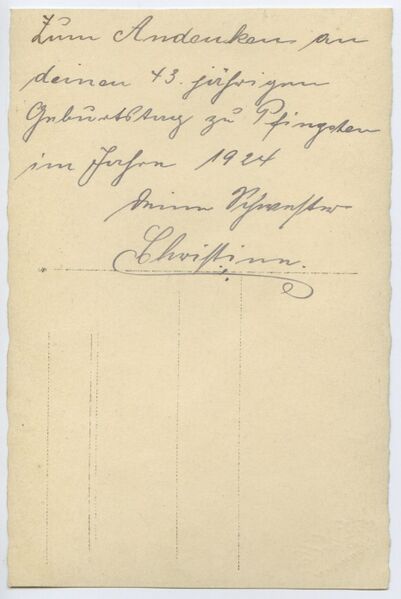 Zum Andenken an
deinen 43. jährigen
Geburtstag zu Pfingsten
im Jahre 1924
deine Schwester
Christine.